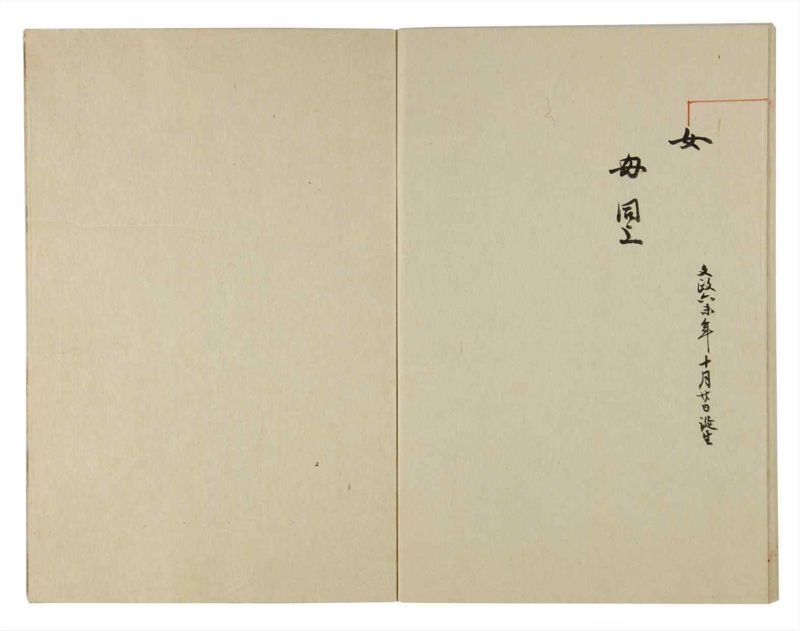 女
文政六未年十月廿日誕生
母同上